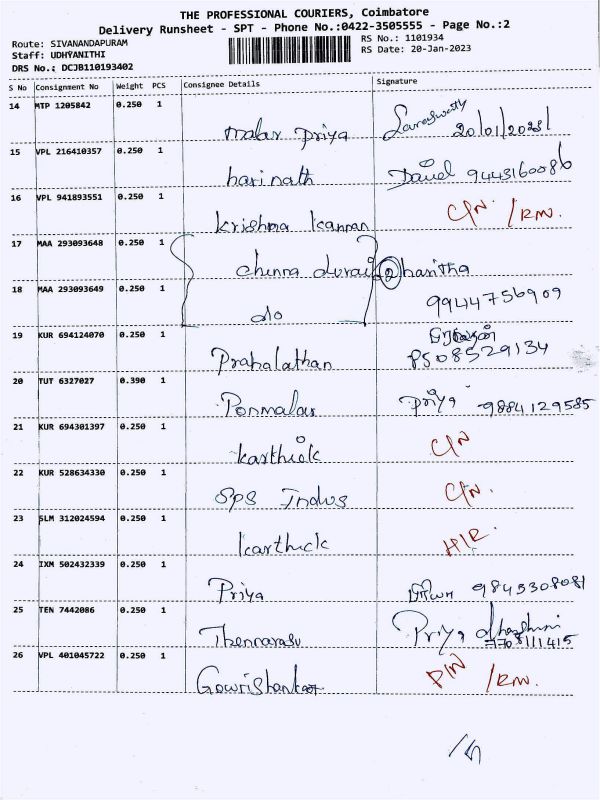 THE PROFESSIONAL COURIERS, Coimbatore
Delivery Runsheet - SPT - Phone No.:0422-3505555 - Page No.:2
Route: SIVANANDAPURAM
RS No.: 1101934
Staff: UDHYANITHI
RS Date: 20-Jan-2023
DRS No.: DCJB110193402
S No Consignment No Weight PCS Consignee Details Signature
14 MTP 1205842 0.250 1
malar priya 20/01/2023
15 VPL 216410357 0.250 1
harinath Daniel 9443160086
16 VPL 941893551 0.250 1
Krishna Kannan C/N. /RM.
17 MAA 293093648 0.250 1
chinna durai 2 haritha
18 MAA 293093649 0.250 1
do 9944756909
19 KUR 694124070 0.250 1
Prahalathan 8508529134
20 TUT 6327027 0.390 1
Ponmalar Priya 9884129585
21 KUR 694301397 0.250 1
Karthick C/N
22 KUR 528634330 0.250 1
SPS Indus C/N.
23 SLM 312024594 0.250 1
Karthick H/R.
24 IXM 502432339 0.250 1
Priya பிரியா 9845308081
25 TEN 7442086 0.250 1
Thennarasu Priya
7708111415
26 VPL 401045722 0.250 1
Gowrishankar P/N /RM.